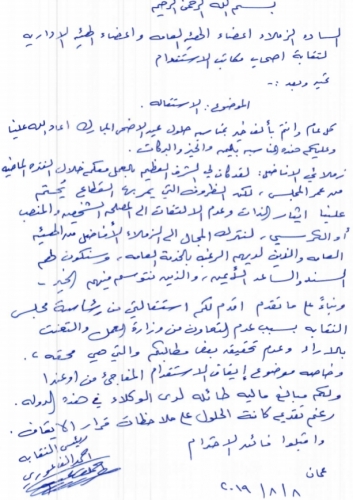 بسم الله الرحمن الرحيم
السادة الزملاء أعضاء الهيئة العامة وأعضاء الهيئة الإدارية
لنقابة أصحاب مكاتب الاستقدام
تحية وبعد :-
الموضوع : الاستقالة .
كل عام وأنتم بألف خير بمناسبة حلول عيد الأضحى المبارك أعاده الله علينا
وعليكم هذه المناسبة باليمن والخير والبركات .
زملائي الأفاضل : لقد كان لي الشرف العظيم بالعمل معكم خلال الفترة الماضية
من عمر المجلس ، لكن الظروف التي يمر بها القطاع تحتم
علينا إيثار الذات وعدم الالتفات إلى المصلحة الشخصية والمنصب
أو الكرسي ، لنترك المجال إلى الزملاء الأفاضل من الهيئة
العامة والذين لديهم الرغبة بالخدمة العامة ، وسنكون لهم
السند والساعد الأيمن ، والذين نتوسم فيهم الخير -
وبناءً على ما تقدم أقدم لكم استقالتي من رئاسة مجلس
النقابة بسبب عدم التعاون من وزارة العمل والتعنت
بالآراء وعدم تحقيق بعض مطالبكم والتي هي محقة ،
وخاصة موضوع إيقاف الاستقدام المفاجئ من أوغندا
ولكم مبالغ مالية طائلة لدى الوكلاء في هذه الدولة .
رغم تقديمي كافة الحلول على ملاحظات قرار الإيقاف .
واقبلوا فائق الاحترام
رئيس النقابة
أحمد الفاعوري
عمان
٢٠١٩ / ٨ / ٨